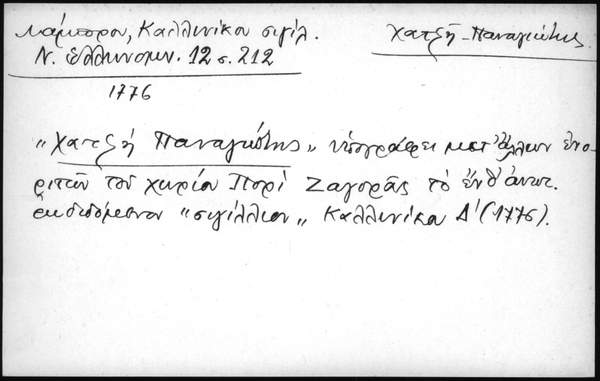 Λάμπρου, Καλλινίκου σιγίλ.
Ν. Ελληνομν. 12 σ. 212
Χατζῆ-Παναγιώτης
1776
"Χατζῆ Παναγιώτης" ὑπογράφει μετ' ἄλλων ἐνο-
ριτῶν τοῦ χωρίου Πορὶ Ζαγορᾶς τὸ ἐνθ' ἀνωτ.
ἐκδιδόμενον "σιγίλλιον" Καλλινίκου Δ' (1776).